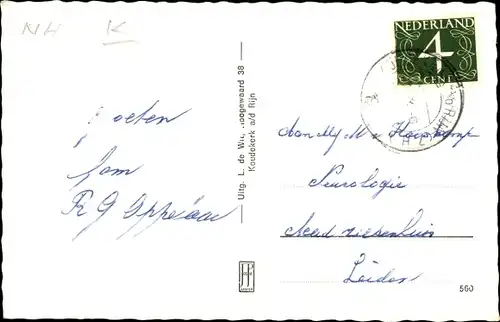 NH K
Groeten
fam
R G Oppelaar
Uitg. L. de Wit, Hoogewaard 38
Koudekerk a/d Rijn
NEDERLAND
4
CENT
Aan Mej M
Neurologie
Acad ziekenhuis
Leiden
560